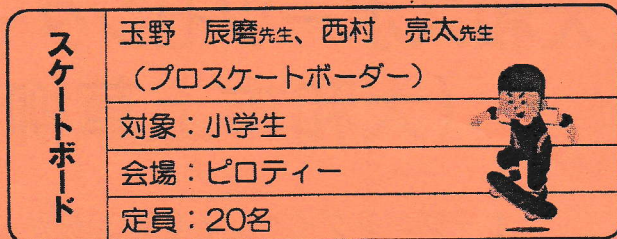 スケートボード
玉野 辰磨先生、西村 亮太先生
（プロスケートボーダー）
対象：小学生
会場：ピロティー
定員：20名